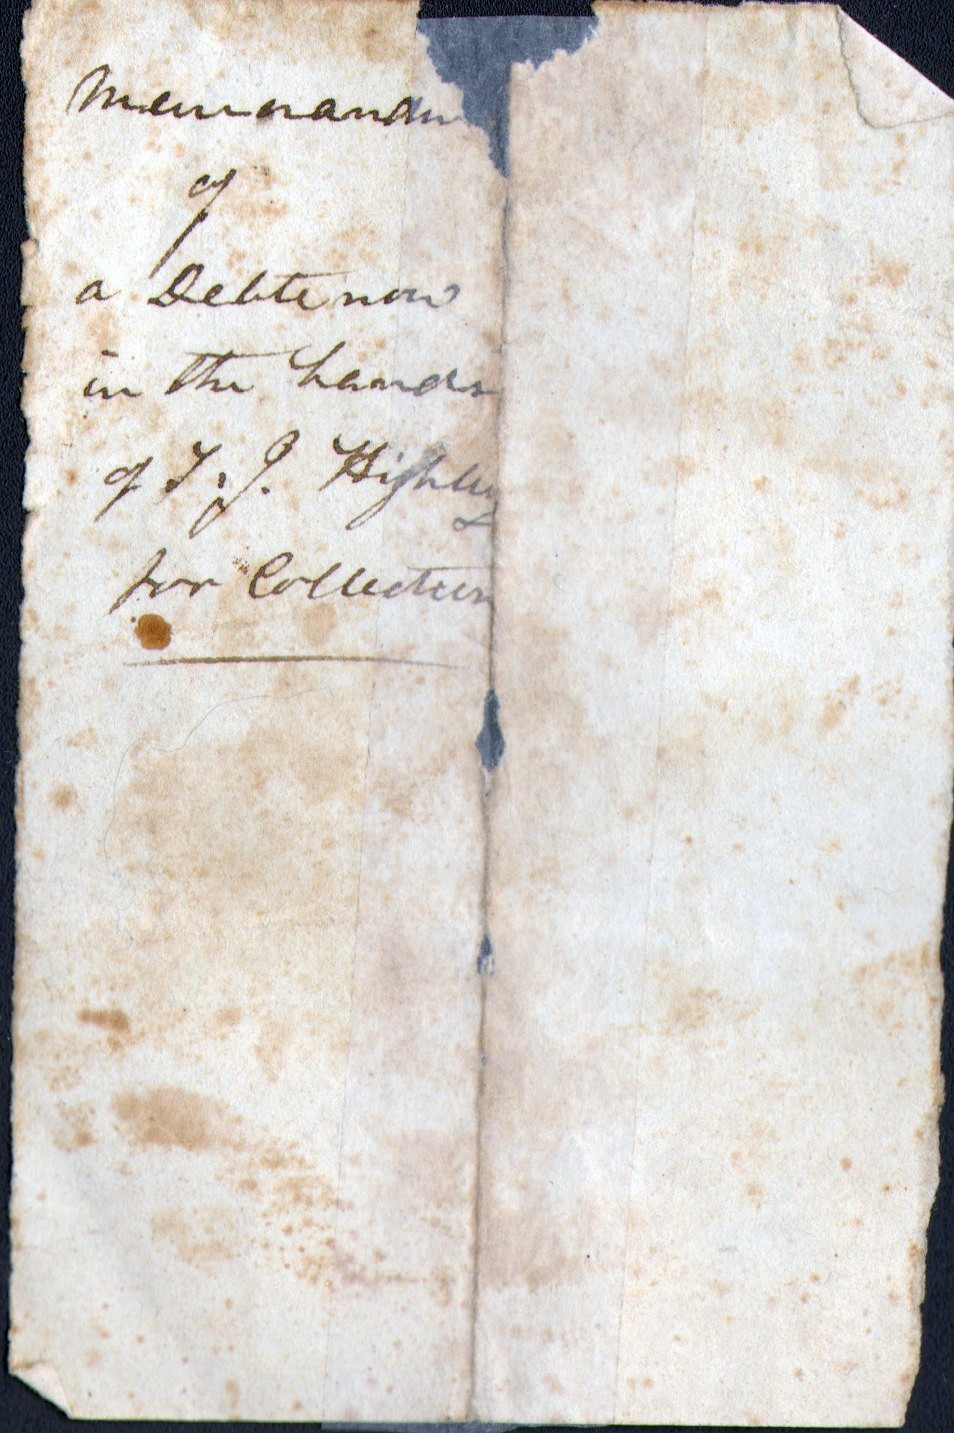 Memorandu
of
a Debte now
in the hands
of T. J. Highley
for Collection